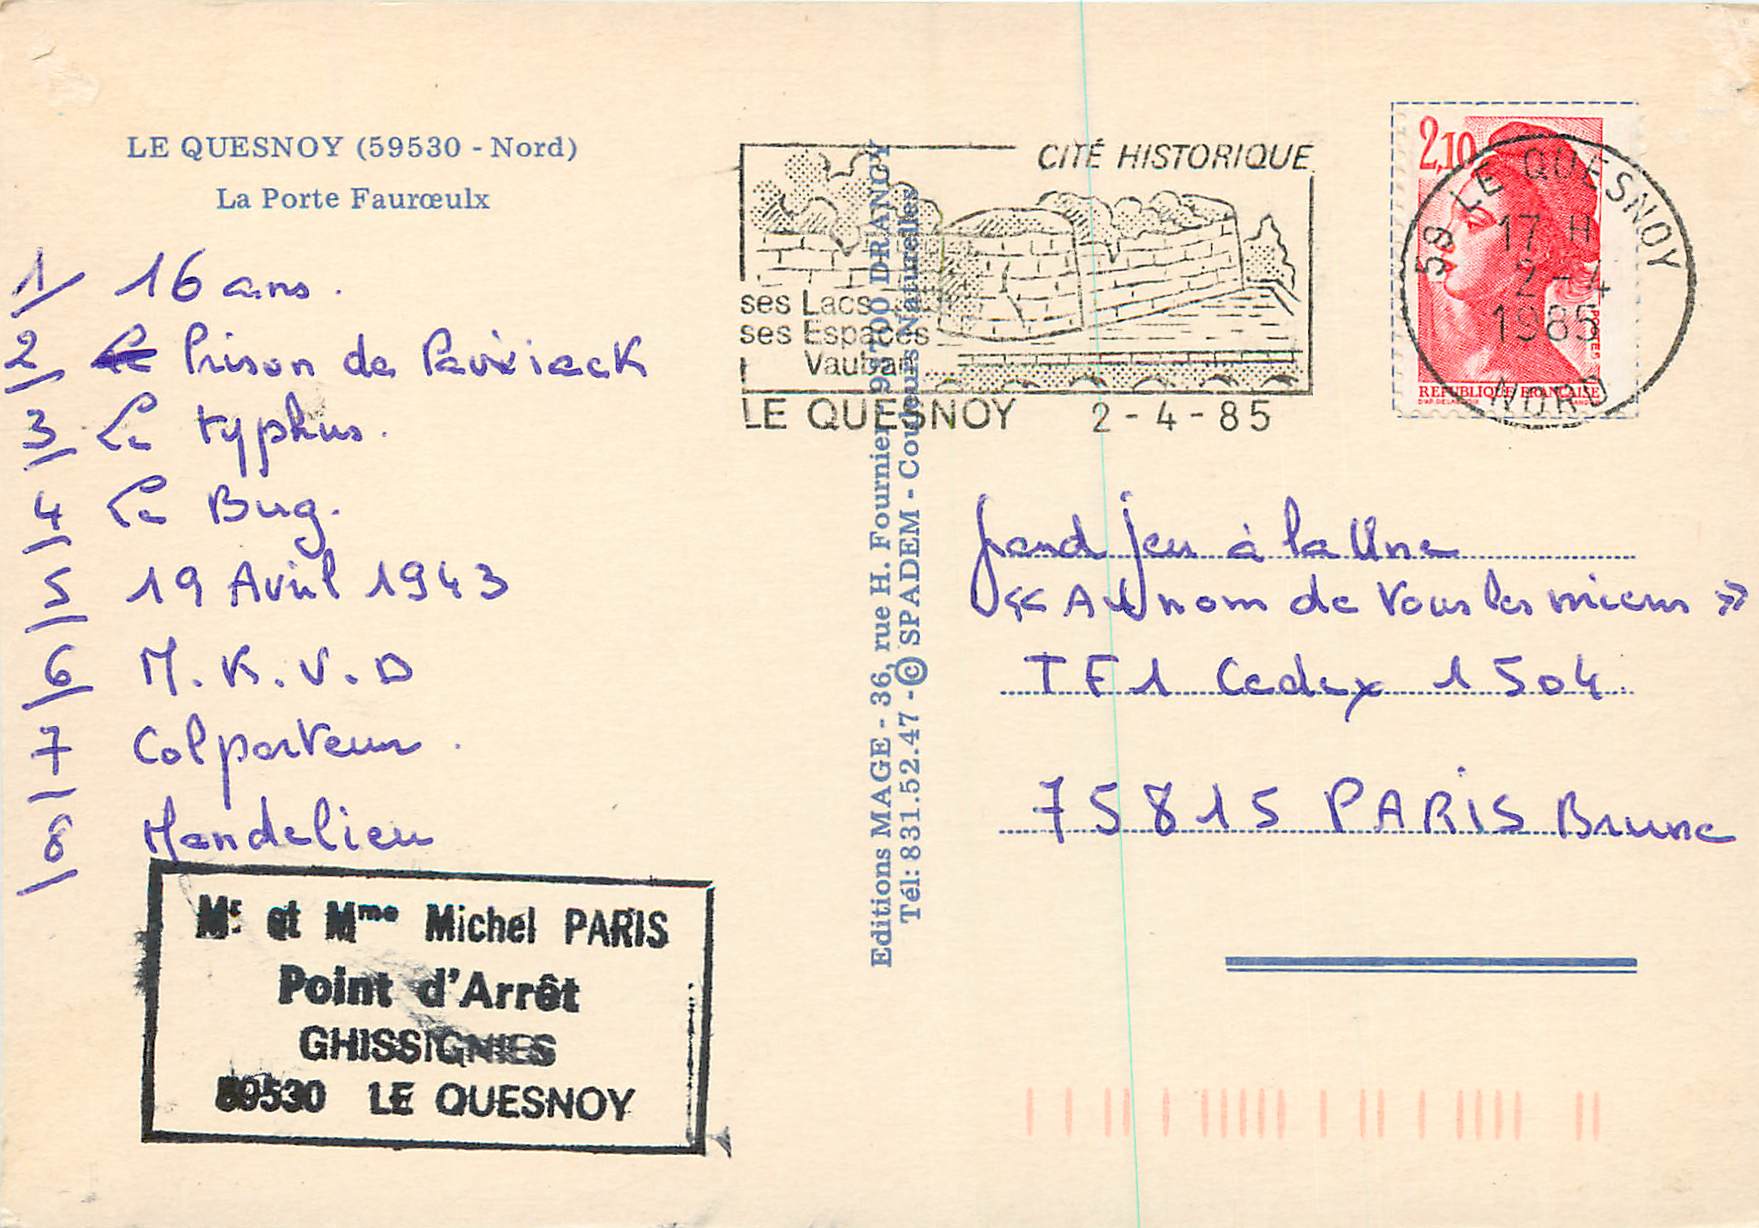 LE QUESNOY (59530 - Nord)
La Porte Faurœulx
1/ 16 ans.
2/ Prison de Paviack
3/ Le typhus.
4/ Le Bug.
5/ 19 Avril 1943
6/ N.K.V.D
7/ Colporteur.
8/ Mandelieu
Mr et Mme Michel PARIS
Point d'Arrêt
GHISSIGNIES
59530 LE QUESNOY
Editions MAGE - 36, rue H. Fournier 93700 DRANCY
Tél: 831.52.47 - © SPADEM - Couleurs Naturelles
CITÉ HISTORIQUE
ses Lacs
ses Espaces
Vauban ....
LE QUESNOY 2-4-85
2,10
REPUBLIQUE FRANÇAISE
POSTES
59 LE QUESNOY
17 H
2-4
1985
NORD
Grand jeu à la Une
« Au nom de tous les miens »
TF1 Cedex 1504
75815 PARIS Brune